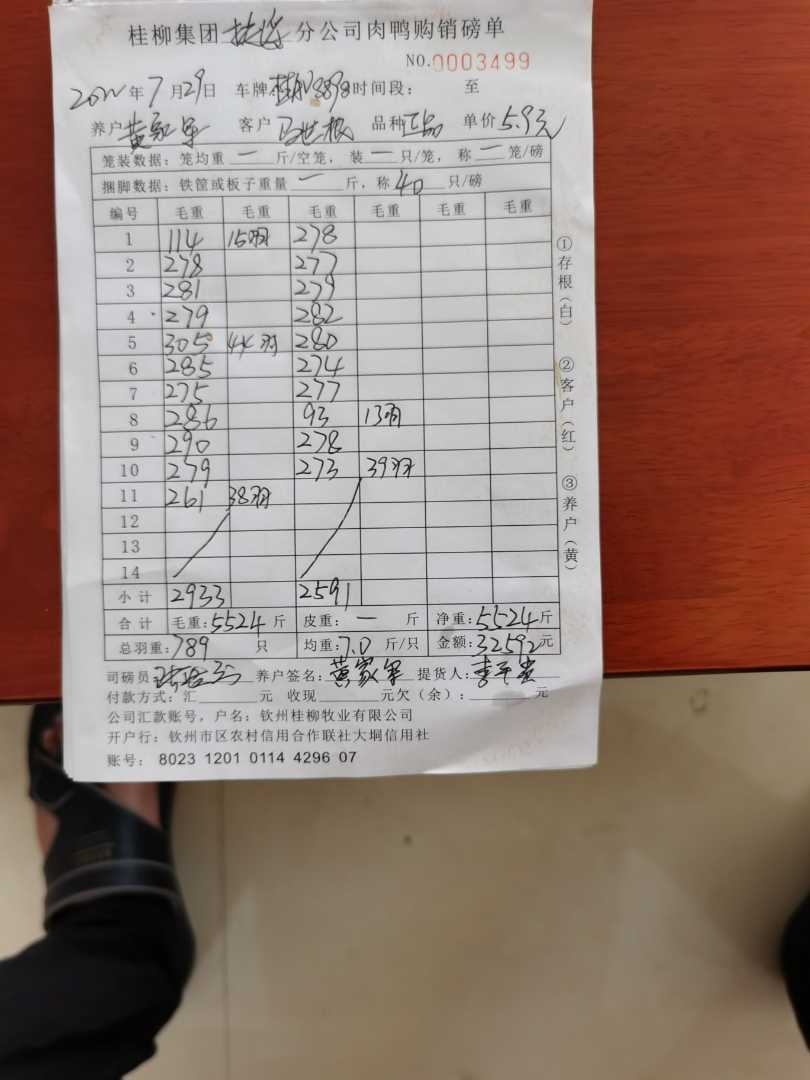 桂柳集团 分公司肉鸭购销磅单
NO.0003499
2022年7月29日 车牌: 8898 时间段: 至
养户 黄家军 客户 马世根 品种 正品 单价 5.9元
笼装数据: 笼均重 一 斤/空笼, 装 一 只/笼, 称 一 笼/磅
捆脚数据: 铁筐或板子重量 一 斤, 称 40 只/磅
编号 毛重 毛重 毛重 毛重 毛重 毛重
1 114 15羽 278
2 278 277
3 281 279
4 279 282
5 305 44羽 280
6 285 274
7 275 277
8 286 93 13羽
9 290 278
10 279 273 39羽
11 261 38羽
12
13
14
小计 2933 2591
合计 毛重: 5524 斤 皮重: 一 斤 净重: 5524 斤
总羽重: 789 只 均重: 7.0 斤/只 金额: 32592 元
司磅员: 养户签名: 黄家军 提货人:
付款方式: 汇 元 收现 元欠(余): 元
公司汇款账号, 户名: 钦州桂柳牧业有限公司
开户行: 钦州市区农村信用合作联社大垌信用社
账号: 8023 1201 0114 4296 07
①存根(白) ②客户(红) ③养户(黄)